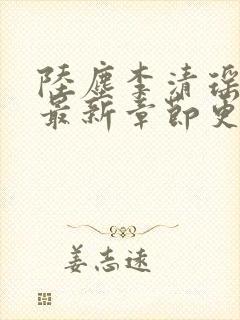 陆尘李清瑶
最新章节更
姜志远